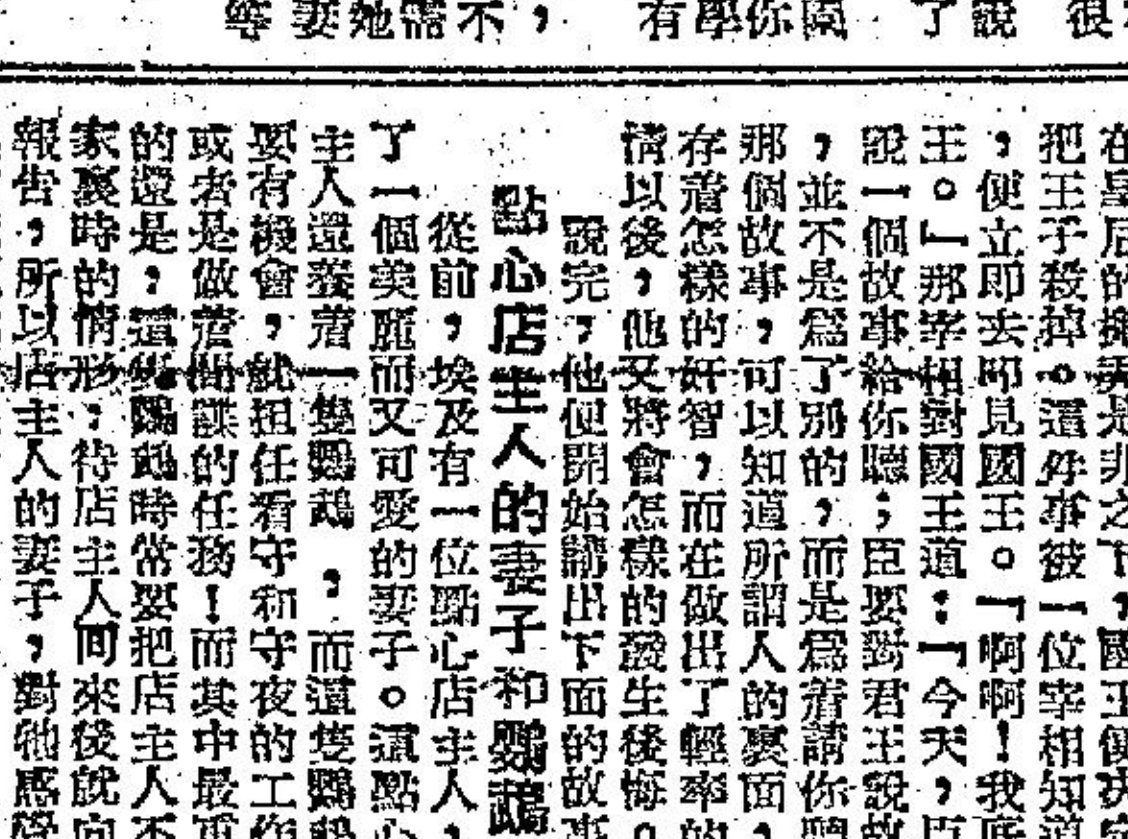 很
說
了
關
你
學
有
，
不
需
她
妻
等
在皇后的搬弄是非之下，國王便決
把王子殺掉。這件事被一位宰相知
，便立即去叩見國王。「啊啊！我底
王。』那宰相對國王道：「今天，臣
說一個故事給你聽；臣要對君王說故
，並不是爲了別的，而是爲着請你聽
那個故事，可以知道所謂人的裏面，
存着怎樣的奸智，而在做出了輕率的
情以後，他又將會怎樣的發生後悔。
說完，他便開始講出下面的故事
點心店主人的妻子和鸚鵡
從前，埃及有一位點心店主人，
了一個美麗而又可愛的妻子。這點心
主人還養着一隻鸚鵡，而這隻鸚鵡
要有機會，就担任看守和守夜的工作
或者是做着間諜的任務！而其中最重
的還是，這隻鸚鵡時常要把店主人不
家裏時的情形：待店主人囘來後就向
報告，所以店主人的妻子，對牠感覺